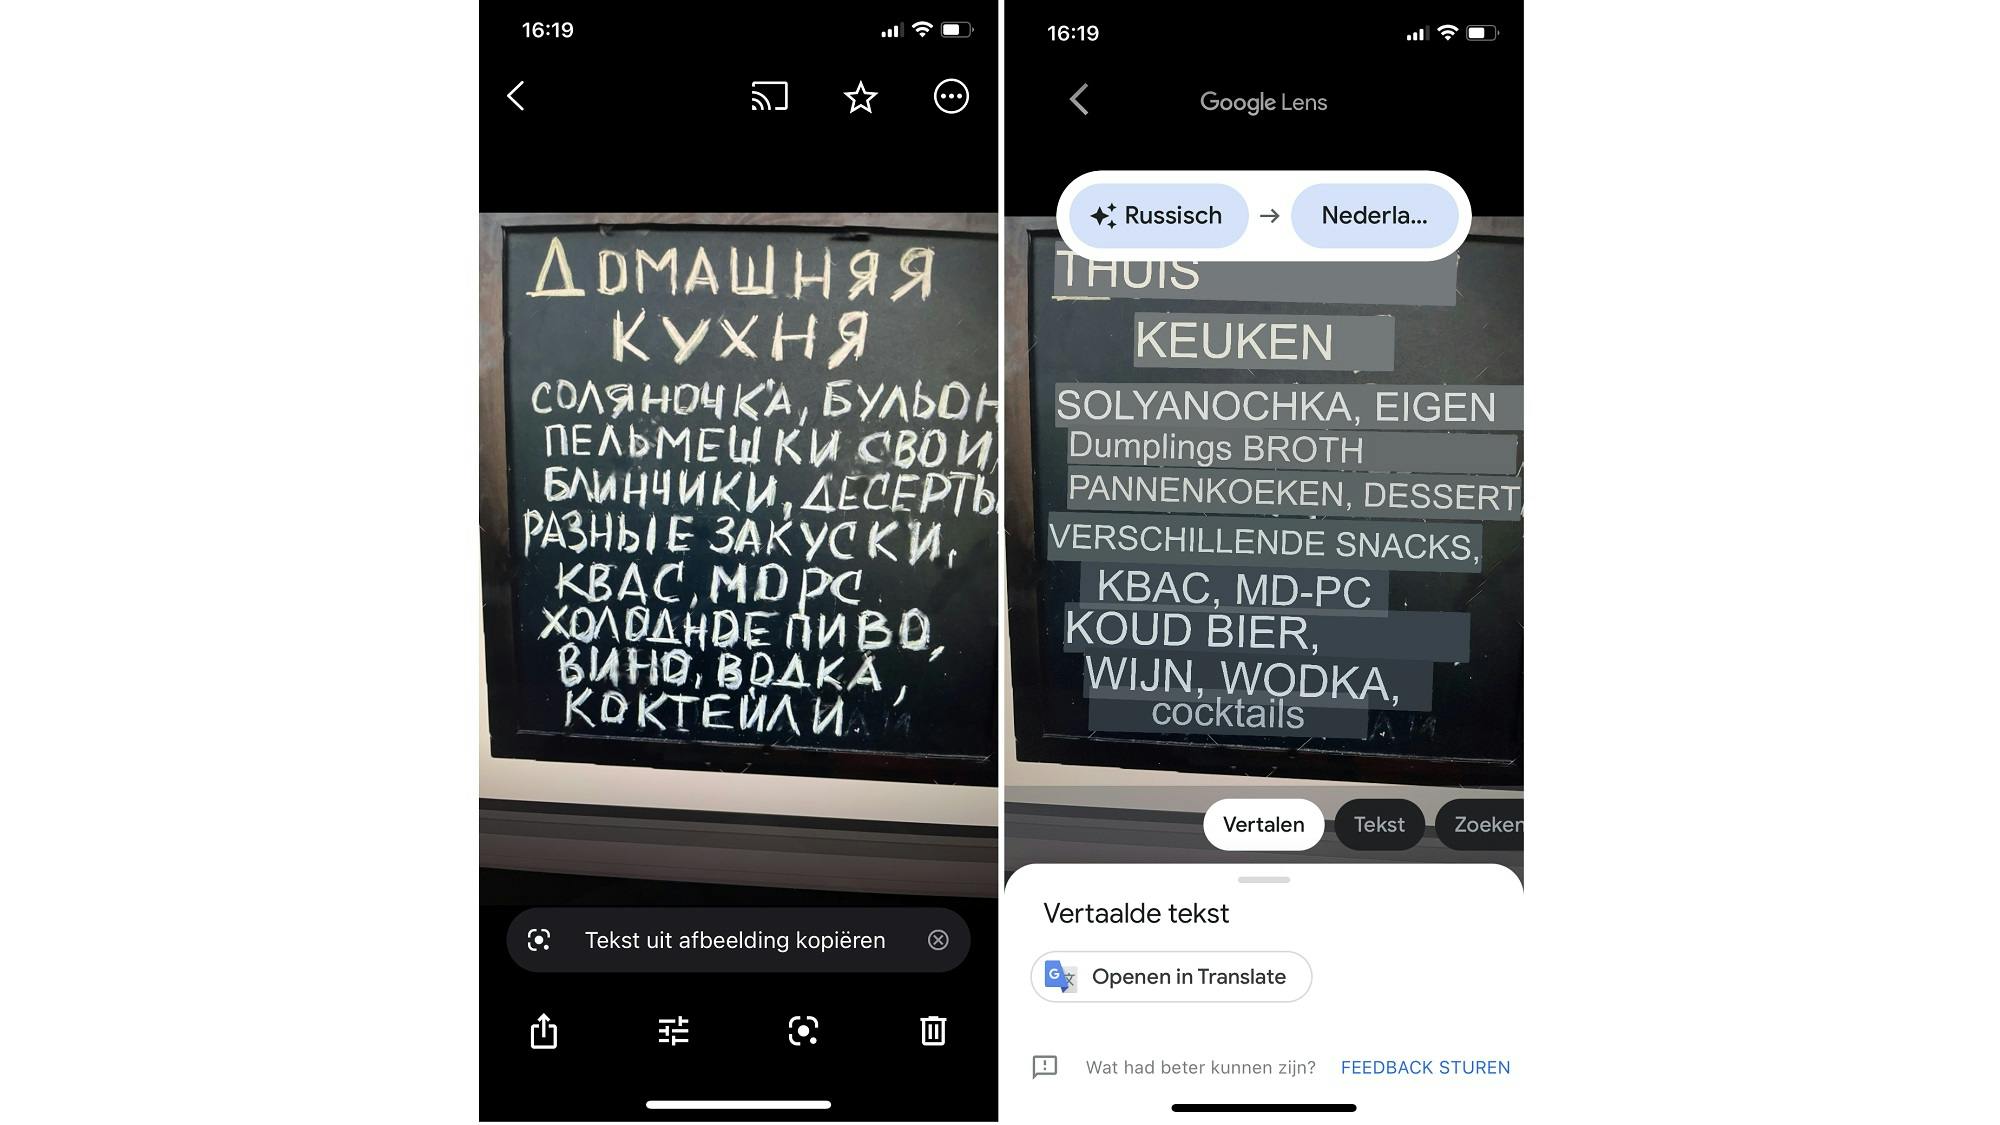 16:19
ДОМАШНЯЯ
КУХНЯ
СОЛЯНОЧКА, БУЛЬОН
ПЕЛЬМЕШКИ СВОИ,
БЛИНЧИКИ, ДЕСЕРТЫ
РАЗНЫЕ ЗАКУСКИ,
КВАС, МОРС
ХОЛОДНОЕ ПИВО,
ВИНО, ВОДКА,
КОКТЕЙЛИ
Tekst uit afbeelding kopiëren
16:19
Google Lens
Russisch → Nederla...
THUIS
KEUKEN
SOLYANOCHKA, EIGEN
Dumplings BROTH
PANNENKOEKEN, DESSERT,
VERSCHILLENDE SNACKS,
KBAC, MD-PC
KOUD BIER,
WIJN, WODKA,
cocktails
Vertalen Tekst Zoeken
Vertaalde tekst
Openen in Translate
Wat had beter kunnen zijn? FEEDBACK STUREN